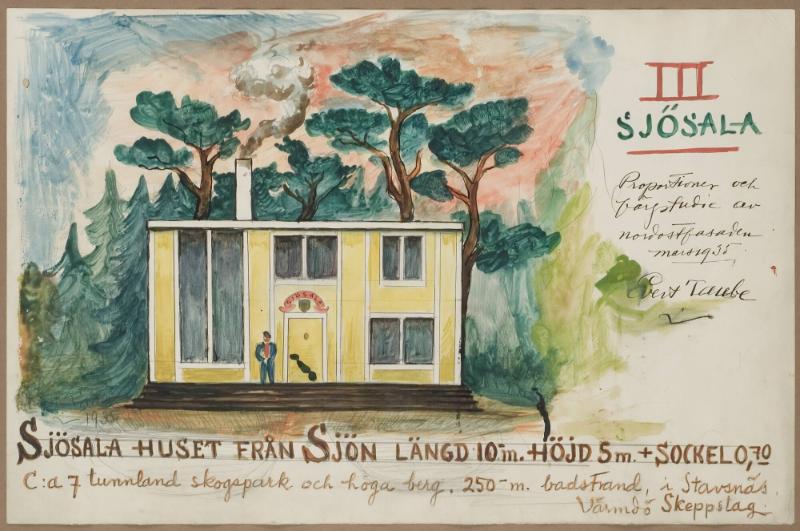 III
SJÖSALA
Proportioner och
färgstudie av
nordostfasaden
mars 1935
Evert Taube
SJÖSALA
1935
SJÖSALA HUSET FRÅN SJÖN LÄNGD 10 m. HÖJD 5 m. + SOCKEL 0,70
C:a 7 tunnland skogspark och höga berg. 250-m. badstrand, i Stavsnäs,
Värmdö Skeppslag.